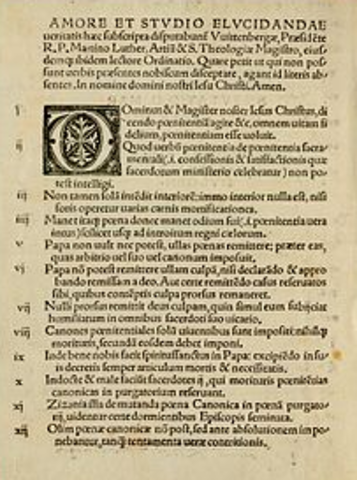 AMORE ET STVDIO ELVCIDANDAE
ueritatis hæc subscripta disputabunť Vuittenbergæ, Præsidēte
R. P. Martino Luther, Artiū & S. Theologiæ Magistro, eius-
dem ǭ ibidem lectore Ordinatio. Quare petit ut qui non pos
sunt uerbis præsentes nobiscum disceptare, agant id literis ab-
sentes. In nomine domini nostri Iesu Christi. Amen.
i Ominus & Magister noster Iesus Christus, di
cendo pœnitētiā agite &c̄. omnem uitam fi
delium, pœnitentiam esse uoluit.
ij Quod uerbū pœnitentia de pœnitentia sacra
mentali(.i. confessionis & satisfactionis quæ
sacerdotum ministerio celebratur) non po-
test intelligi.
iij Non tamen solā intēdit interiorē: immo interior nulla est, nisi
foris operetur uarias carnis mortificationes.
iiij Manet itaqȝ pœna donec manet odium sui(.i. pœnitentia uera
intus) scilicet usqȝ ad introitum regni cælorum.
v Papa non uult nec potest, ullas pœnas remittere; præter eas,
quas arbitrio uel suo uel canonum imposuit.
vj Papa nō potest remittere ullam culpā, nisi declarādo & appro
bando remissam a deo. Aut certe remittēdo casus reseruatos
sibi, quibus contēptis culpa prorsus remaneret.
vij Nulli prorsus remittit deus culpam, quin simul eum subijciat
humiliatum in omnibus sacerdoti suo uicario.
viij Canones pœnitentiales solū uiuentibus sunt impositi: nihilqȝ
morituris, secundū eosdem debet imponi.
ix Inde bene nobis facit spiritussanctus in Papa: excipiēdo in su-
is decretis semper articulum mortis & necessitatis.
x Indocte & male faciūt sacerdotes ij, qui morituris pœnitētias
canonicas in purgatorium reseruant.
xj Zizania illa de mutanda pœna Canonica in pœnā purgato-
rij, uidentur certe dormientibus Episcopis seminata.
xij Olim pœnæ canonicæ nō post, sed ante absolutionem im po-
nebantur, tanqȝ tentamenta ueræ contritionis.